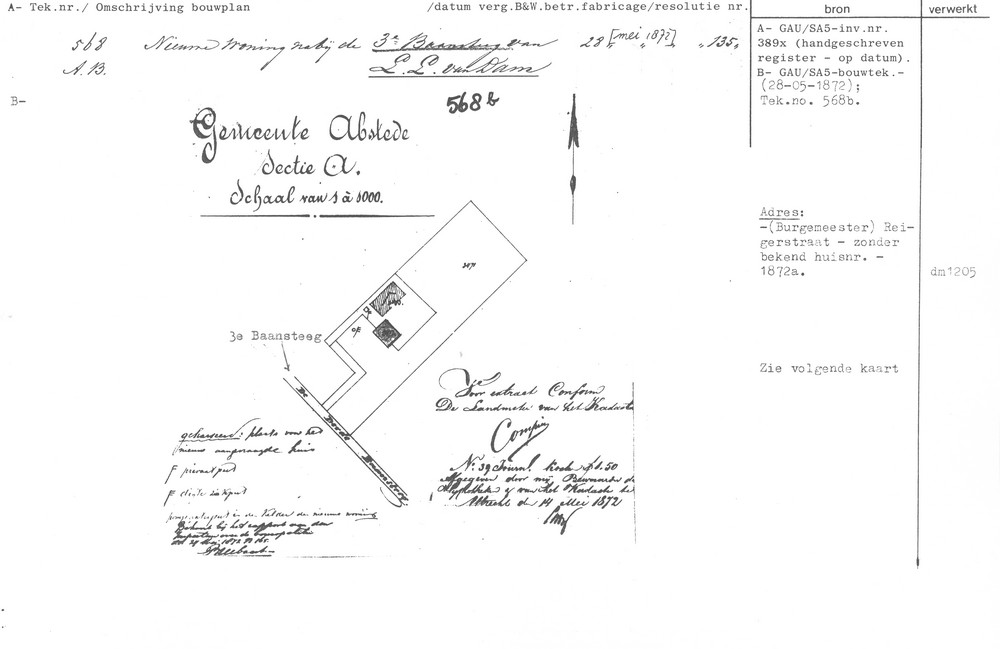 A- Tek.nr./ Omschrijving bouwplan /datum verg.B&W.betr.fabricage/resolutie nr. bron verwerkt
568 Nieuwe Woning nabij de 3e Baansteeg van 28 [mei 1872] " 135 "
A.B. L. L. van Dam
A- GAU/SA5-inv.nr.
389x (handgeschreven
register - op datum).
B- GAU/SA5-bouwtek.-
(28-05-1872);
Tek.no. 568b.
B-
568 b
Gemeente Abstede
Sectie A.
Schaal van 1 à 1000.
Adres:
-(Burgemeester) Rei-
gerstraat - zonder
bekend huisnr. -
1872a.
dm1205
3e Baansteeg
De Derde Baansteeg
Zie volgende kaart
Voor extract Conform
De Landmeter van het Kadaster
No. 39 Journl. Kosten f 1.50
Afgegeven door mij Bewaarder der
Hypotheken van het Kadaster te
Utrecht den 14 Mei 1872
gearceerd: plaats van het
nieuw aangevraagde huis
P privaatput
in de Kelder der nieuwe woning
Behoort bij het rapport van den